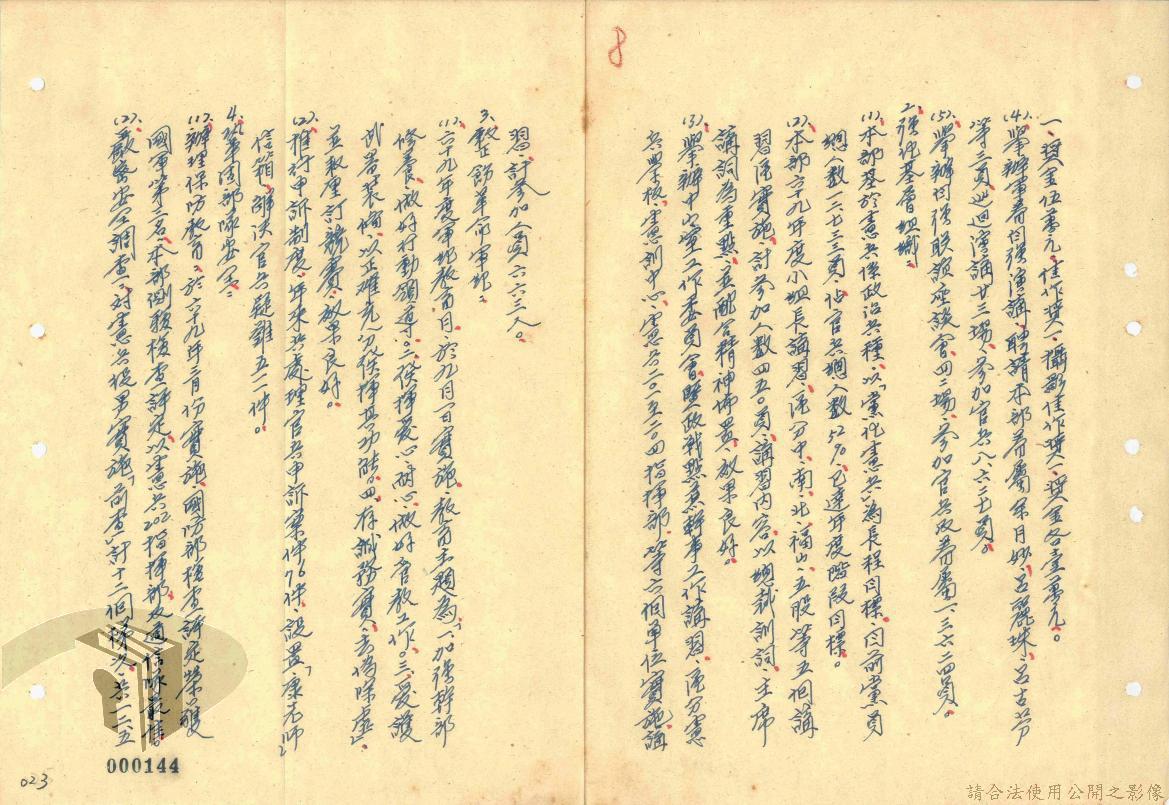 8
一、獎金伍萬元、佳作獎一、攝影佳作獎一、獎金各壹萬元。
(4)、舉辦軍眷自強演講、聘請本部眷屬 月妙、呂麗珠、呂古芳
等三員巡迴演講廿三場、參加官兵八六二七員。
(5)、舉辦自強聯誼座談會、四二場、參加官兵及眷屬一、三六二四員。
2.強化基層組織：
(1)、本部基於憲兵係政治兵種、以「黨化憲兵」為長程目標、目前黨員
總人數二七二三員、佔官兵總人數52%、已達年度階段目標。
(2)、本部六十九年度小組長講習、區分中、南、北、福山、五股等五個講
習區實施、計參加人數四五〇員、講習內容、以總裁訓詞、主席
講詞為重點、並配合精神佈置、效果良好。
(3)、舉辦中心黨工作委員會暨政戰幹事工作講習、區分憲
兵學校、憲訓中心、憲兵二〇一至二〇四指揮部、等六個單位實施、講
習、計參加人員六六三人。
3.整飭革命軍紀：
(1)、六十九年度軍紀教育月、於九月一日實施、教育主題為「一、加強幹部
修養、做好行動領導。二、發揮愛心耐心、做好官教工作。三、愛護
武器裝備、以正確充分發揮其功能。四、存誠務實、去偽除虛」。
並敦厘訂競賽、效果良好。
(2)、推行申訴制度、年來共處理官兵申訴案件76件、設置「康老師」
信箱、解決官兵疑難五一件。
4.鞏固部隊安全：
(1)、辦理保防教育、於六十九年三月份實施、國防部檢查評定榮獲
國軍第三名、本部測驗檢查評定、以憲兵202指揮部及通信隊最佳。
(2)、嚴密安全調查、對憲兵役男實施「前查」計十二個梯次、共一二、五
000144
023
請合法使用公開之影像